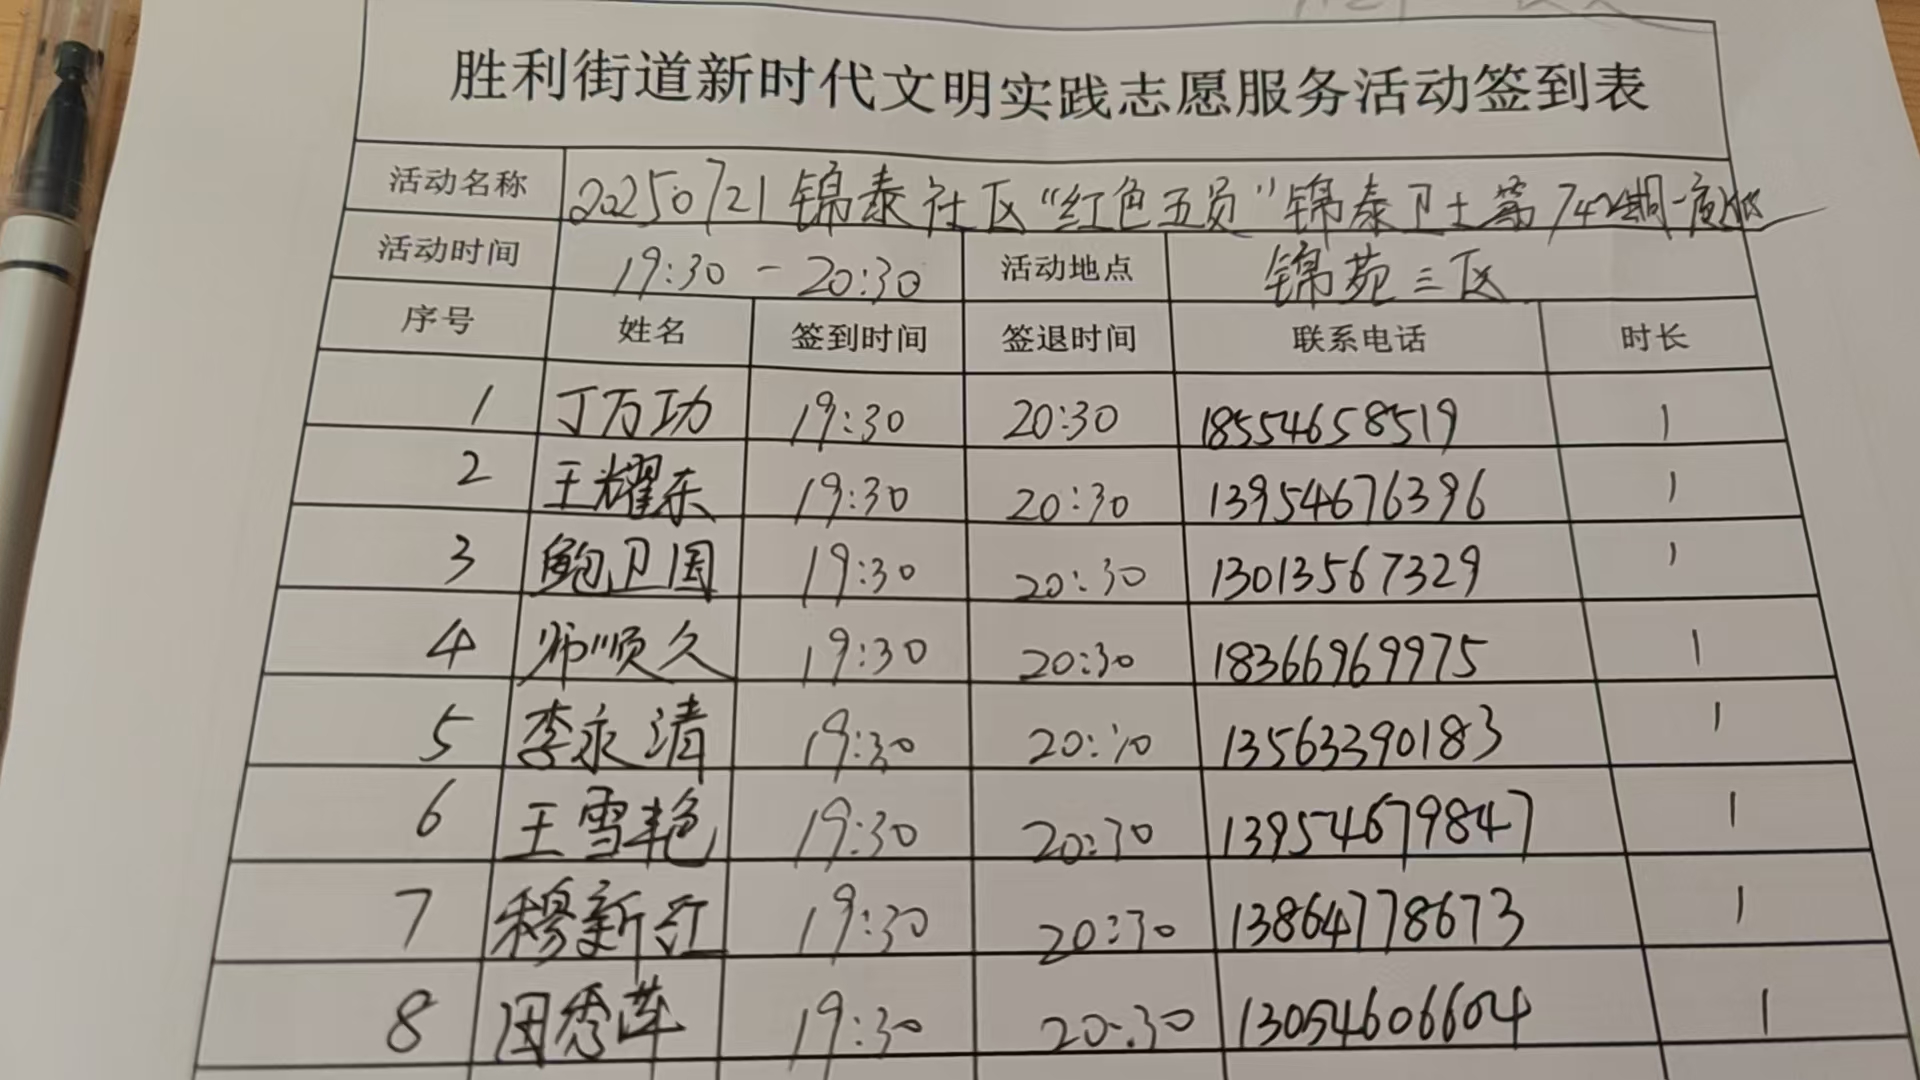 胜利街道新时代文明实践志愿服务活动签到表
活动名称 20250721 锦泰社区“红色五员”锦泰卫士第74周一夜巡
活动时间 19:30 - 20:30 活动地点 锦苑三区
序号 姓名 签到时间 签退时间 联系电话 时长
1 丁万功 19:30 20:30 18554658519 1
2 王耀东 19:30 20:30 13954676396 1
3 鲍卫国 19:30 20:30 13013567329 1
4 师顺久 19:30 20:30 18366969975 1
5 李永清 19:30 20:30 13563390183 1
6 王雪艳 19:30 20:30 13954679847 1
7 穆新红 19:30 20:30 13864778673 1
8 田秀莲 19:30 20:30 13054606604 1